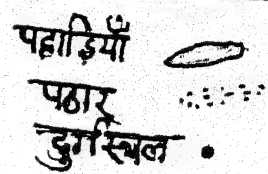 पहाड़ियाँ
पठार
दुर्गस्थल